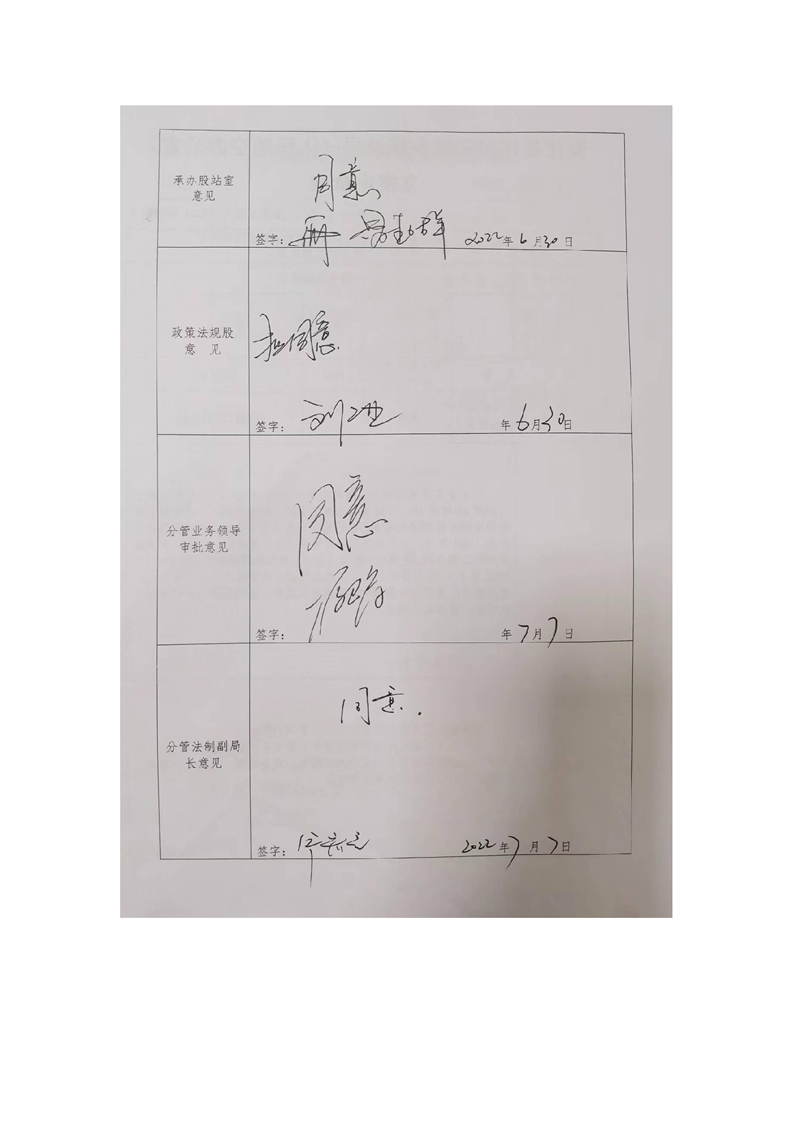 承办股站室
意见
同意
签字： 2022年6月30日
政策法规股
意 见
拟同意
签字： 年6月30日
分管业务领导
审批意见
同意
签字： 年7月7日
分管法制副局
长意见
同意.
签字： 2022年7月7日